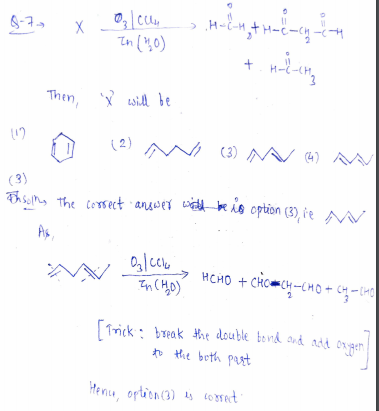 Q-7→ X O3/CCl4 Zn(H2O) → H-C-H, + H-C-CH2-C-H
O O O
+ H-C-CH3
O
Then, 'X' will be
(1) (2) (3) (4)
(3)
Soln→ The correct answer is option (3), i.e
As,
O3/CCl4 Zn(H2O) → HCHO + CHO-CH2-CHO + CH3-CHO
[Trick: break the double bond and add oxygen
to the both part]
Hence, option(3) is correct.